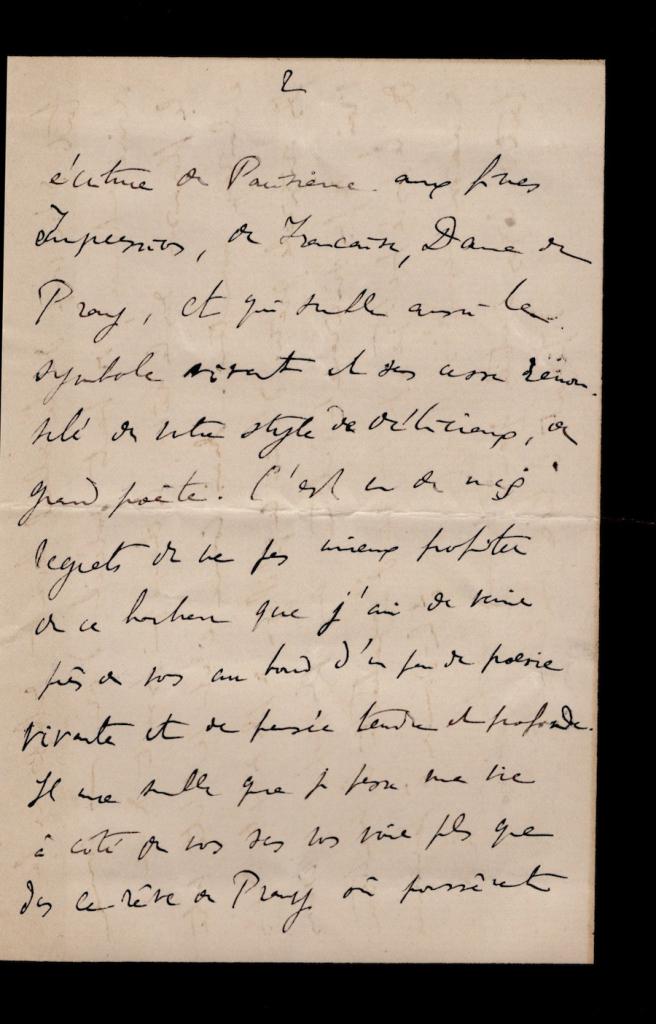 2
écriture de Parisienne aux fines
Impressions, de Française, Dame de
Prony, et qui semble aussi le
symbole vivant et sans cesse renou-
velé de votre style de délicieux, de
grand poète. C'est un de mes
regrets de ne pas mieux profiter
de ce bonheur que j'ai de vivre
près de vous au bord d'un peu de poésie
vivante et de pensée tendre et profonde.
Il me semble que je passe ma vie
à côté de vous sans vous voir plus que
dans ce rêve de Prony où